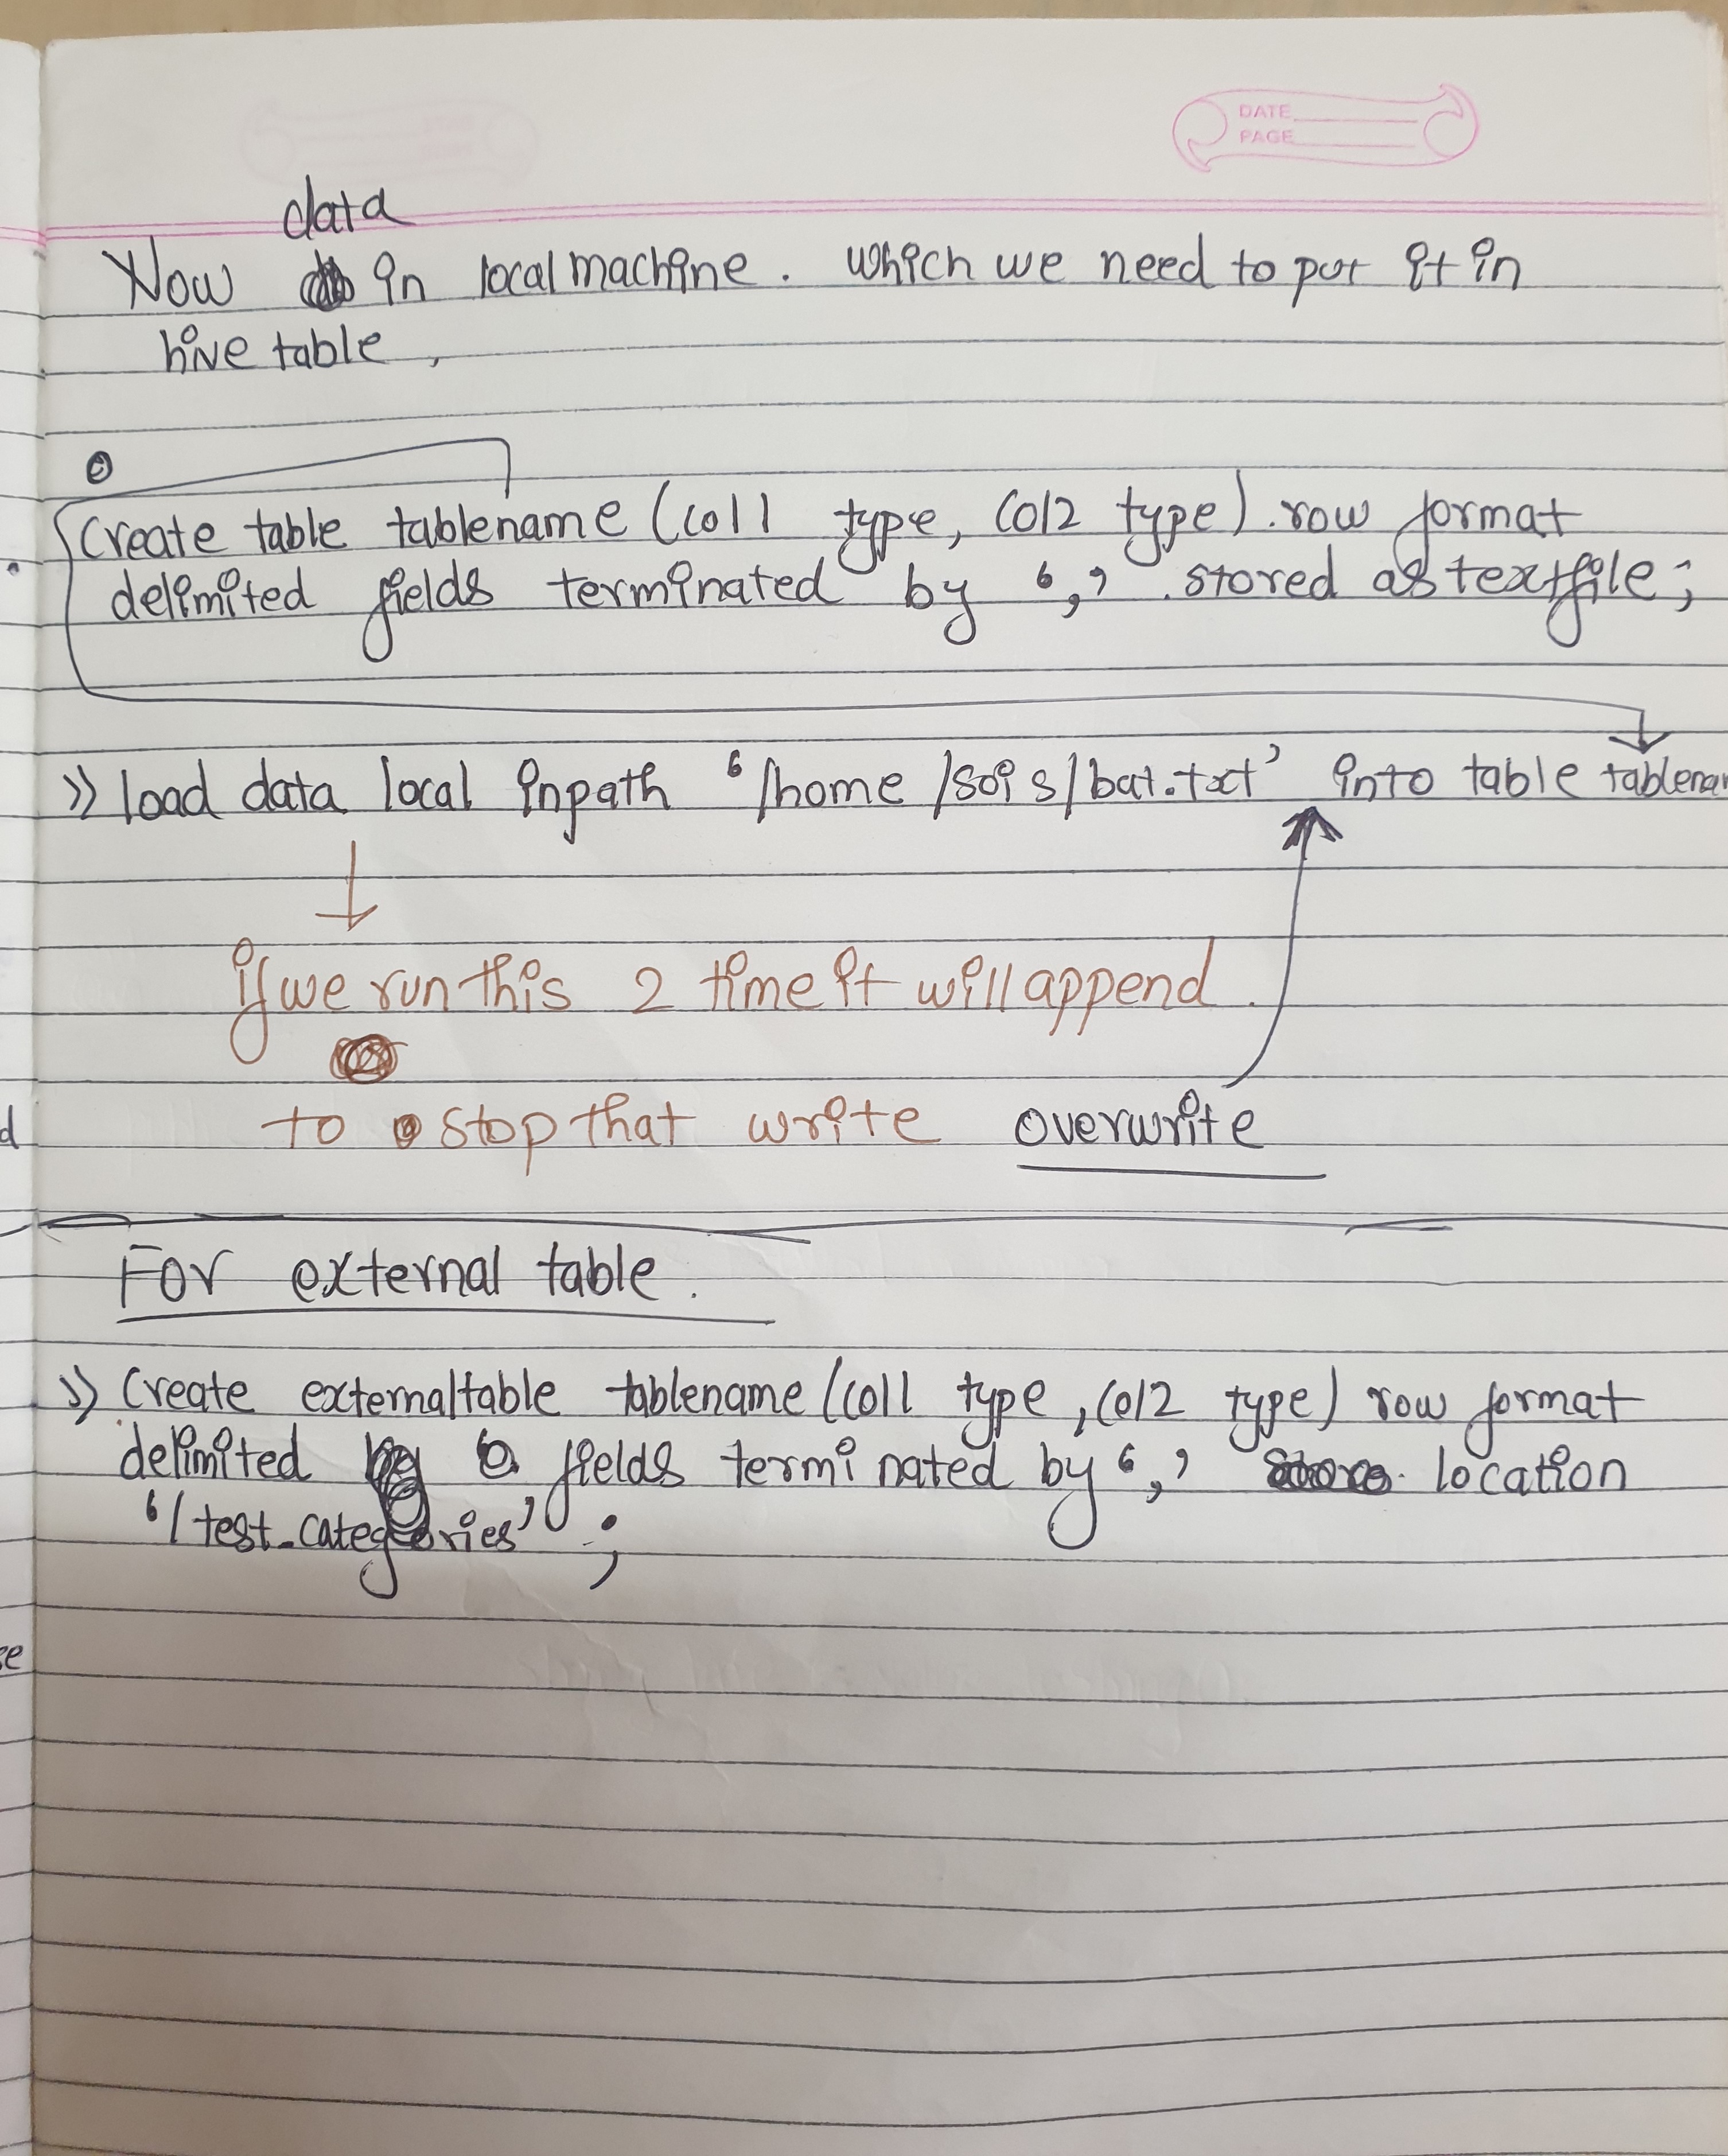 DATE
PAGE
data
Now in local machine. which we need to put it in
hive table,
Create table tablename (col1 type, col2 type). row format
delimited fields terminated by ',' . stored as textfile;
>> load data local inpath '/home/sois/bat.txt' into table tablenam
if we run this 2 time it will append.
to stop that write overwrite
For external table.
>> Create external table tablename (col1 type, col2 type) row format
delimited fields terminated by ',' location
'/test_categories' ;
d
se